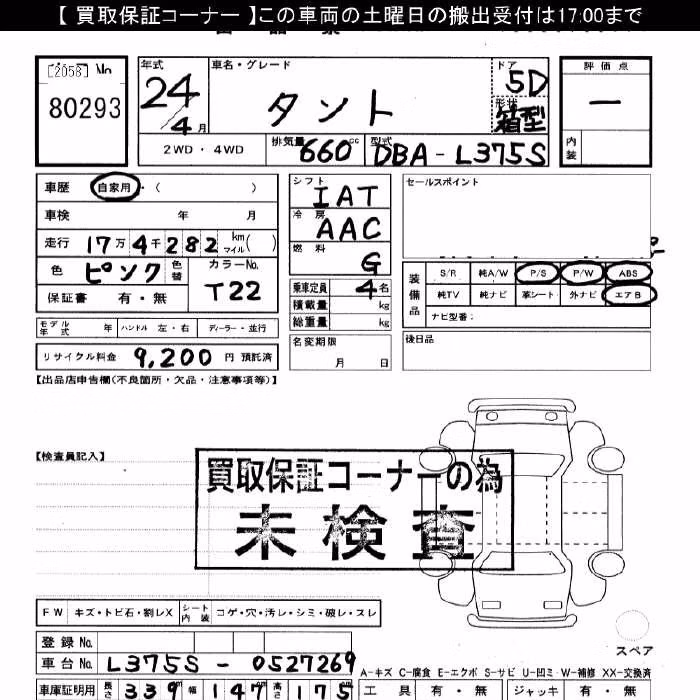 【 買取保証コーナー 】この車両の土曜日の搬出受付は17:00まで
[2058] No
80293
年式
24
4月
車名・グレード
タント
ドア
5D
形状
箱型
評価点
—
内装
2WD・4WD
排気量 660 cc
型式 DBA-L375S
車歴 自家用・( )
車検 年 月
走行 17万4千282 km マイル( )
色 ピンク 色替
カラーNo. T22
保証書 有・無
シフト IAT
冷房 AAC
燃料 G
乗車定員 4名
積載量 kg
総重量 kg
セールスポイント
装備品
S/R 純A/W P/S P/W ABS
純TV 純ナビ 革シート 外ナビ エアB
ナビ型番:
モデル年式 年 ハンドル 左・右 ディーラー・並行
リサイクル料金 9,200 円 預託済
名変期限
月 日
後日品
【出品店申告欄(不良箇所・欠品・注意事項等)】
【検査員記入】
買取保証コーナーの為
未検査
FW キズ・トビ石・割レX シート内装 コゲ・穴・汚レ・シミ・破レ・スレ
スペア
登録No.
車台No. L375S-0527269
A-キズ C-腐食 E-エクボ S-サビ U-凹ミ W-補修 XX-交換済
車庫証明用 長さ 339 幅 147 高さ 175
工具 有・無 ジャッキ 有・無